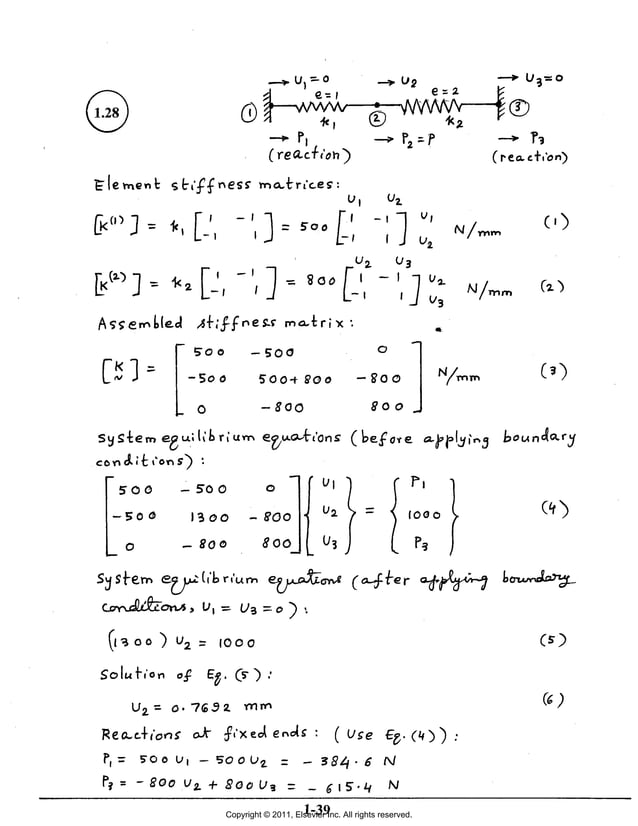 1.28
→ U₁=0 → U₂ → U₃=0
e=1 e=2
① k₁ ② k₂ ③
→ P₁ → P₂=P → P₃
(reaction) (reaction)
Element stiffness matrices:
U₁ U₂
[K⁽¹⁾] = k₁ [ 1 -1 ; -1 1 ] = 500 [ 1 -1 ; -1 1 ] U₁ U₂ N/mm (1)
U₂ U₃
[K⁽²⁾] = k₂ [ 1 -1 ; -1 1 ] = 800 [ 1 -1 ; -1 1 ] U₂ U₃ N/mm (2)
Assembled stiffness matrix:
500 -500 0
[K] = -500 500+800 -800 N/mm (3)
~
0 -800 800
System equilibrium equations (before applying boundary
conditions):
500 -500 0 U₁ P₁
-500 1300 -800 U₂ = 1000 (4)
0 -800 800 U₃ P₃
System equilibrium equations (after applying boundary
conditions, U₁ = U₃ = 0):
(1300) U₂ = 1000 (5)
Solution of Eq. (5):
U₂ = 0.7692 mm (6)
Reactions at fixed ends: (Use Eq. (4)):
P₁ = 500 U₁ - 500 U₂ = - 384.6 N
P₃ = - 800 U₂ + 800 U₃ = - 615.4 N
1-39
Copyright © 2011, Elsevier Inc. All rights reserved.